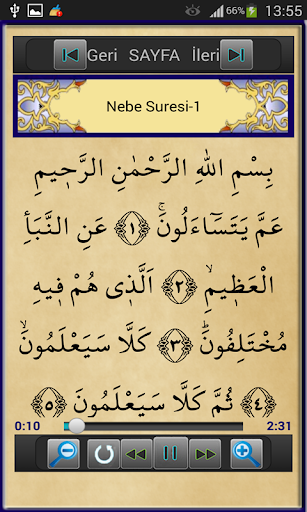 66% 13:55
Geri SAYFA İleri
Nebe Suresi-1
بِسْمِ اللهِ الرَّحْمٰنِ الرَّح۪يمِ
عَمَّ يَتَسَٓاءَلُونَۚ ﴿١﴾ عَنِ النَّبَأِ
الْعَظ۪يمِۙ ﴿٢﴾ اَلَّذ۪ي هُمْ ف۪يهِ
مُخْتَلِفُونَۜ ﴿٣﴾ كَلَّا سَيَعْلَمُونَۙ
﴿٤﴾ ثُمَّ كَلَّا سَيَعْلَمُونَ ﴿٥﴾
0:10 2:31